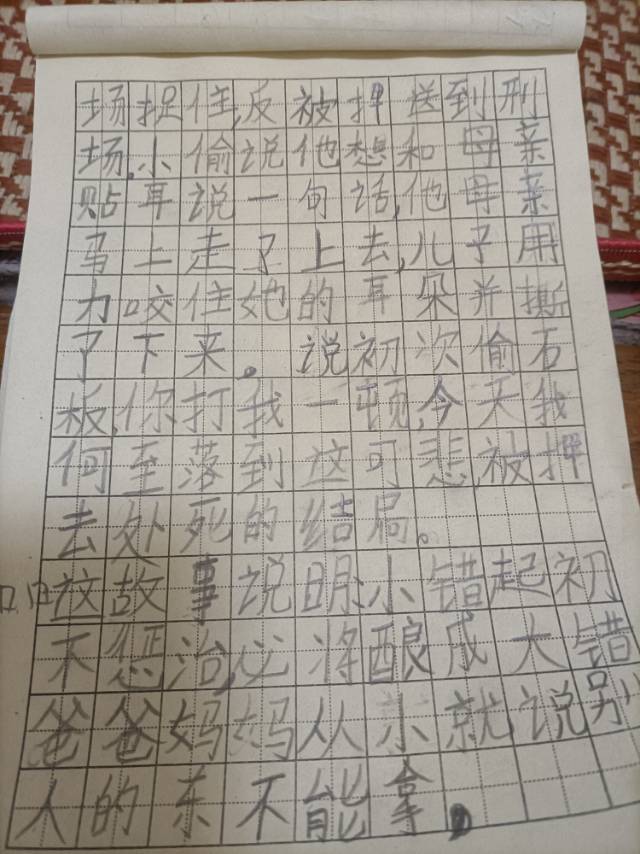 场捉住,反被押送到刑
场,小偷说他想和母亲
贴耳说一句话,他母亲
马上走了上去,儿子用
力咬住她的耳朵并撕
了下来。说初次偷石
板,你打我一顿,今天我
何至落到这可悲,被押
去处死的结局。
这故事说明:小错起初
不惩治,必将酿成大错
爸爸妈妈从小就说别
人的东不能拿.